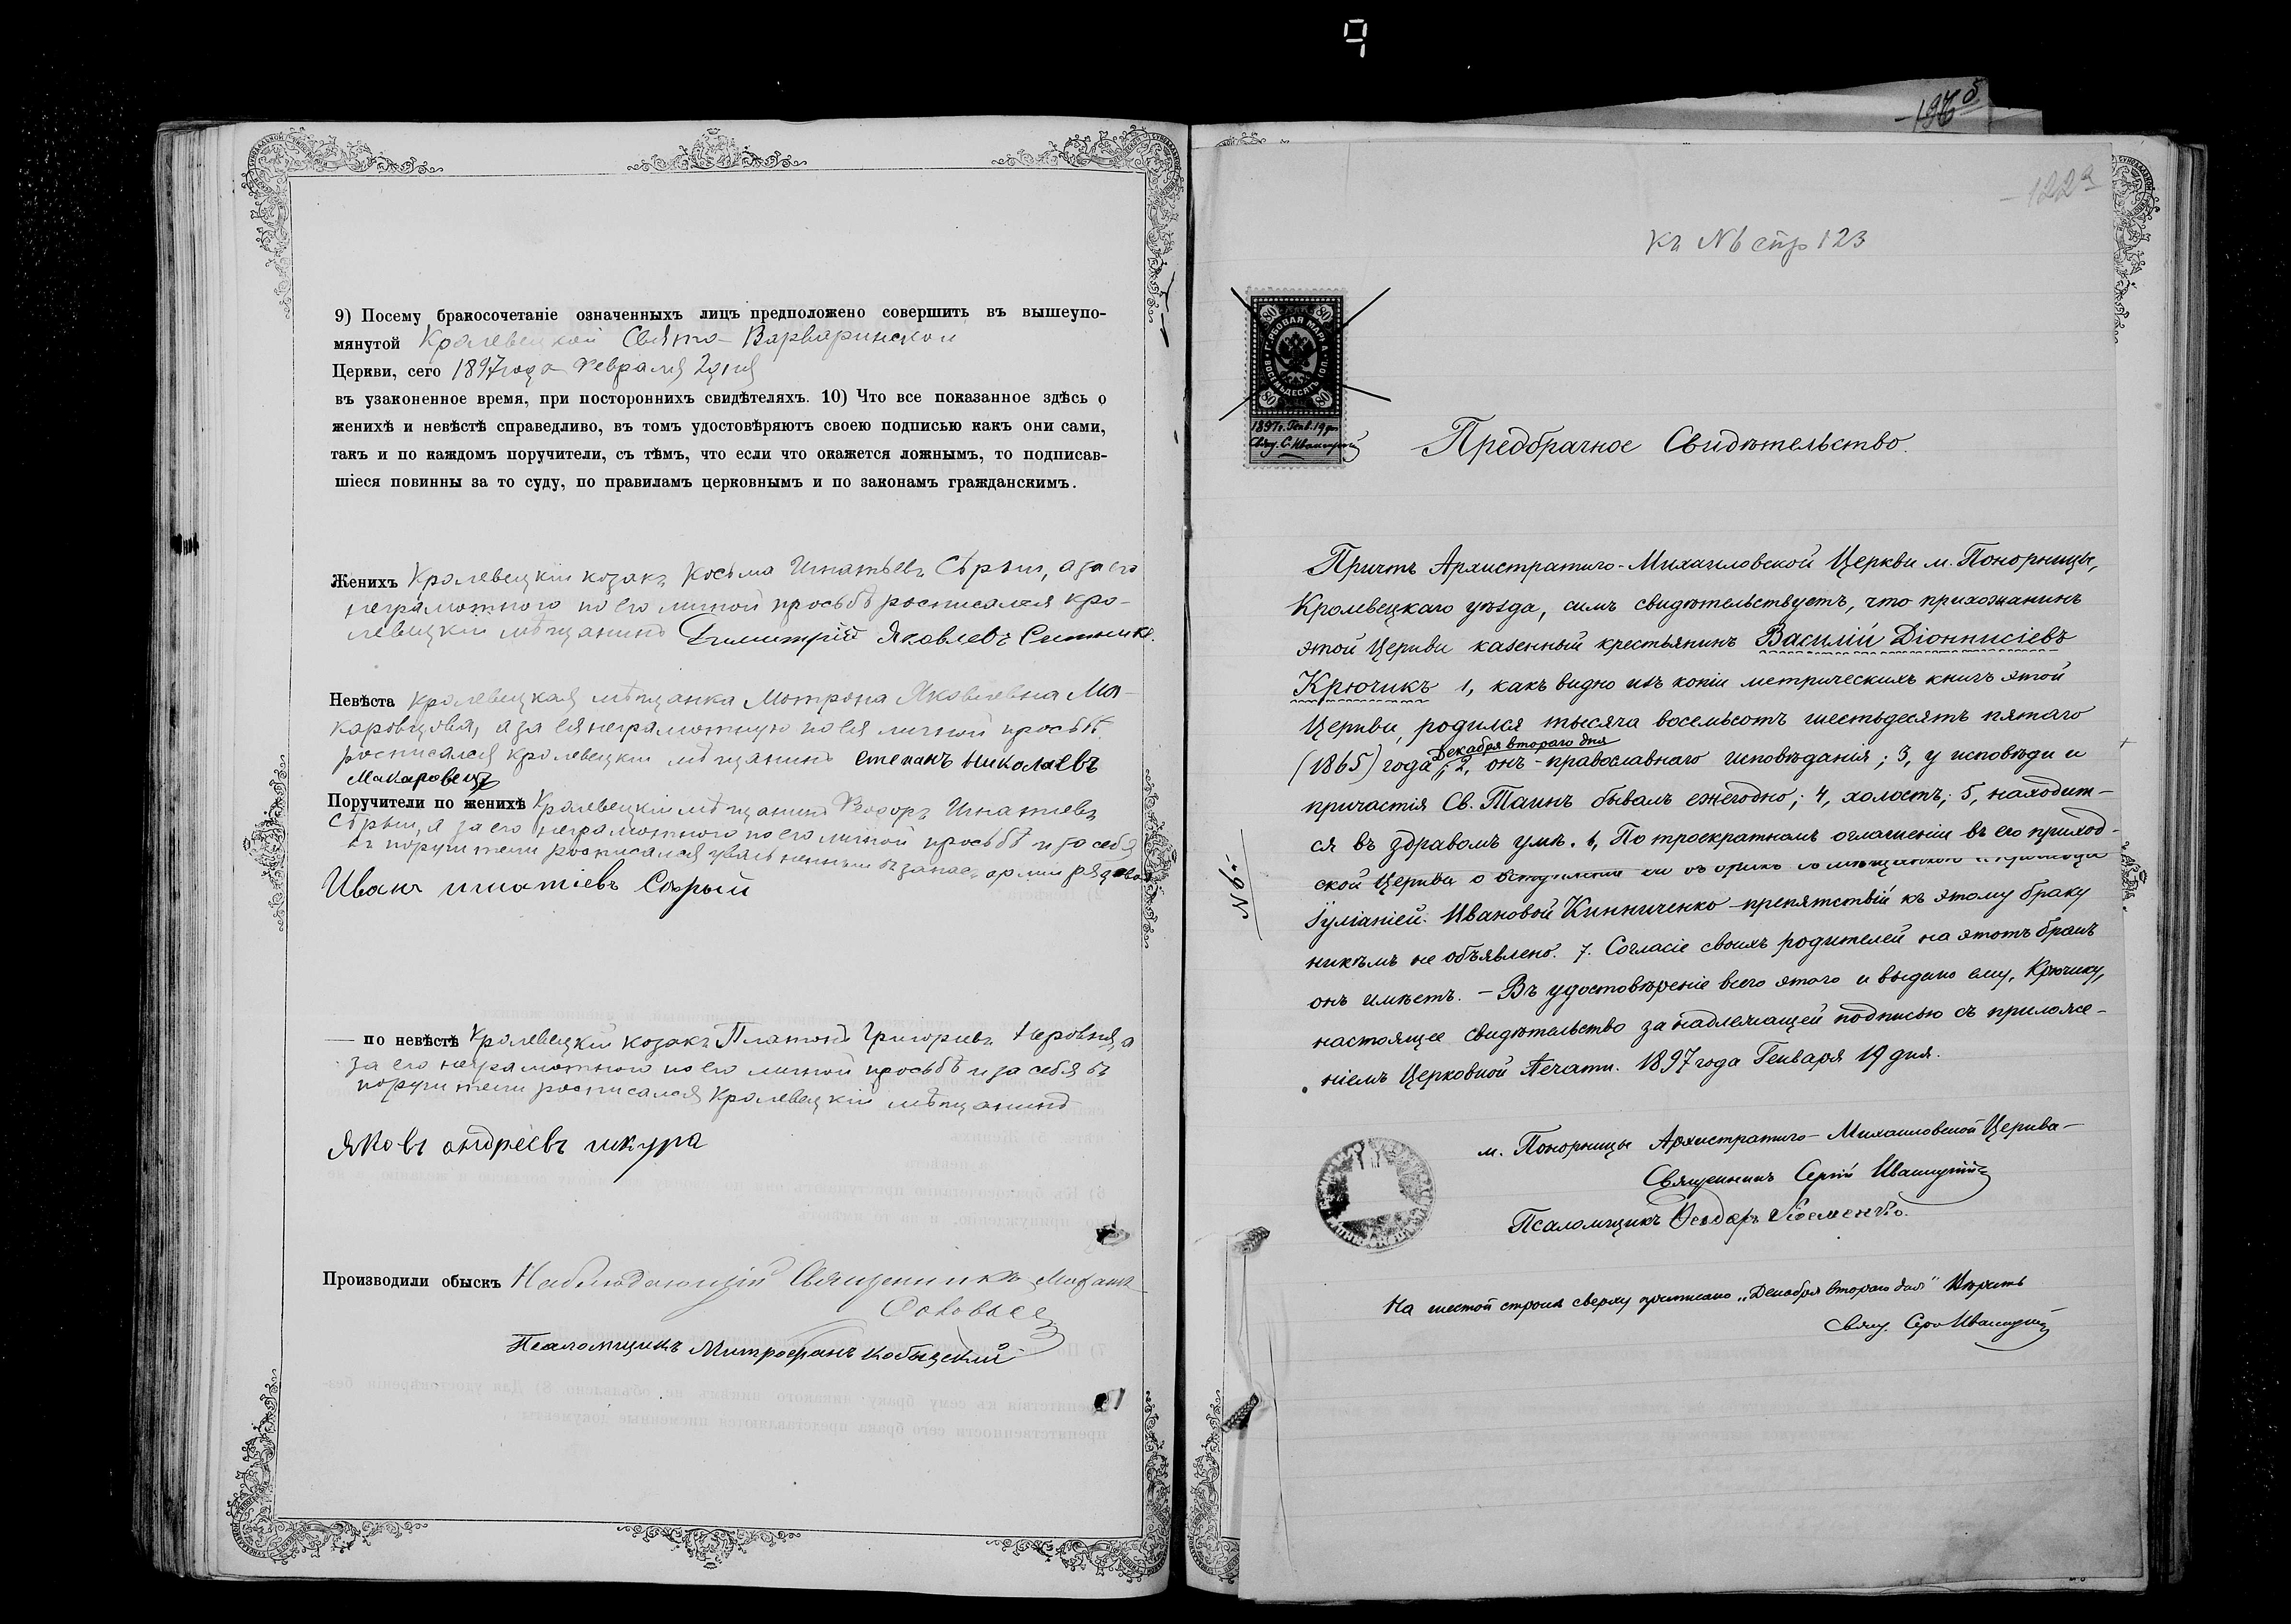 9) Посему бракосочетаніе означенныхъ лицъ предположено совершить въ вышеупо-
мянутой Кролевецкой Свято-Варваринской
Церкви, сего 1897 года Февраля 2 дня
въ узаконенное время, при постороннихъ свидѣтеляхъ. 10) Что все показанное здѣсь о
женихѣ и невѣстѣ справедливо, въ томъ удостовѣряютъ своею подписью какъ они сами,
такъ и по каждомъ поручители, съ тѣмъ, что если что окажется ложнымъ, то подписав-
шіеся повинны за то суду, по правиламъ церковнымъ и по законамъ гражданскимъ.
Женихъ Кролевецкій козакъ Косьма Игнатьевъ Сѣрый, а за его
неграмотного по его личной просьбѣ росписался кро-
левецкій мѣщанинъ Димитрій Яковлевъ Ситникъ.
Невѣста Кролевецкая мѣщанка Мотрона Яковлевна Ма-
каровцова, а за ея неграмотную по ея личной просьбѣ
росписался кролевецкій мѣщанинъ степанъ николаевъ
Макаровецъ
Поручители по женихѣ Кролевецкій мѣщанинъ Ѳеодоръ Игнатіевъ
Сѣрый, а за его неграмотного по его личной просьбѣ и за себя
въ поручители росписался уволенный въ запасъ арміи рядовой
Иванъ игнатіевъ Сѣрый
— по невѣстѣ Кролевецкій козакъ Платонъ Григорьевъ а
за его неграмотного по его личной просьбѣ и за себя въ
поручители росписался Кролевецкій мѣщанинъ
Яковъ андреевъ шкура
Производили обыскъ Наблюдающій Священникъ Михаилъ
Соловьев
Псаломщикъ Митрофанъ Кобызскій
196 б
122а
Къ № стр 123
ГЕРБОВАЯ МАРКА
ВОСЕМЬДЕСЯТЪ КОП.
80 80
80 80
1897 г. Генв. 19 дн.
Свящ. С. Ивашутий
Предбрачное Свидѣтельство.
Причтъ Архистратиго-Михаиловской Церкви м. Понорницы,
Кролевецкаго уѣзда, симъ свидѣтельствуетъ, что прихожанинъ
этой Церкви казенный крестьянинъ Василій Діонисіевъ
Крючикъ 1, какъ видно изъ копіи метрическихъ книгъ этой
Церкви, родился тысяча восемьсотъ шестьдесятъ пятаго
Декабря втораго дня
(1865) года; 2, онъ - православнаго исповѣданія; 3, у исповѣди и
причастія Св. Таинъ бывалъ ежегодно; 4, холостъ; 5, находит-
ся въ здравомъ умѣ. 6, По троекратномъ оглашеніи въ его приход-
ской Церкви о вступленіи въ бракъ съ мѣщанкою
Іуліаніей Ивановой Кинниченко - препятствій къ этому браку
никѣмъ не объявлено. 7. Согласіе своихъ родителей на этотъ бракъ
онъ имѣетъ. - Въ удостовѣреніе всего этого и выдано ему, Крючику,
настоящее свидѣтельство за надлежащей подписью съ приложе-
ніемъ Церковной печати. 1897 года Генваря 19 дня.
№ 6.
м. Понорницы Архистратиго-Михаиловской Церкви-
Священникъ Сергій Ивашутий
Псаломщикъ Ѳеодоръ
На шестой строкѣ сверху приписано „Декабря втораго дня" вѣрить
Свящ. Серг Ивашутий